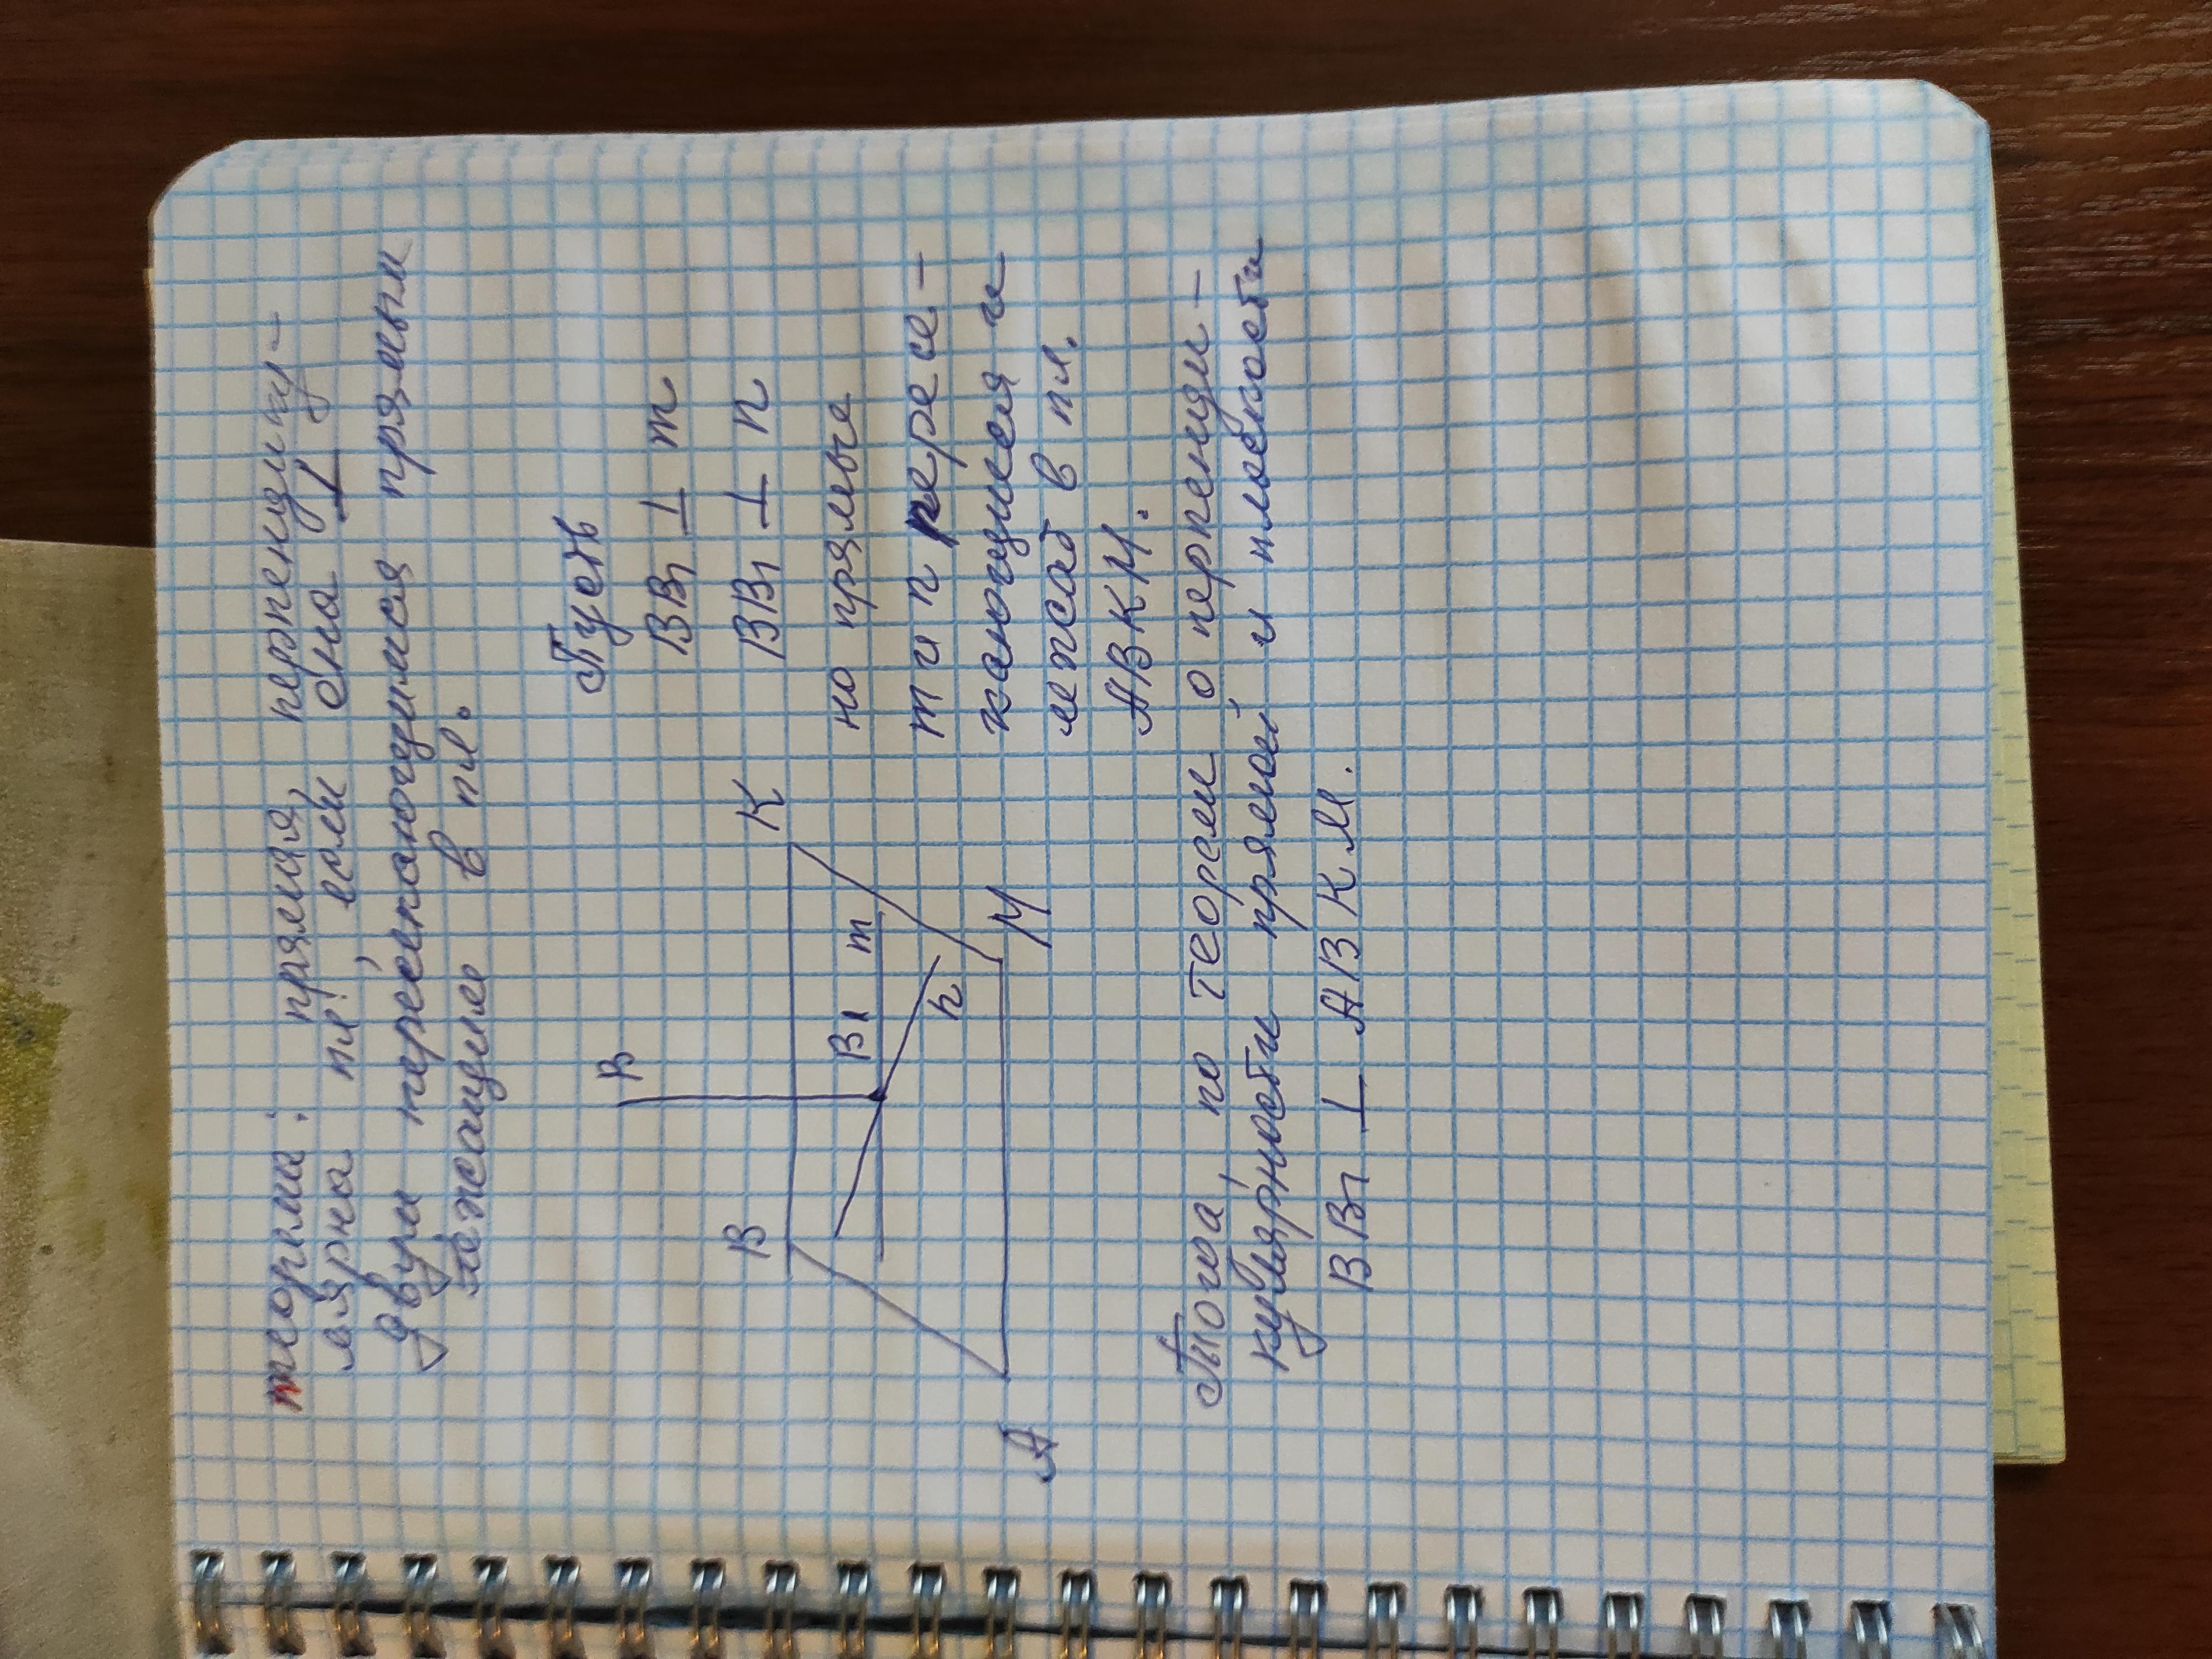 теорема: прямая, перпендику-
лярна пл, если она ⊥
двум пересекающимся прямым
лежащие в пл.
Пусть
BB₁ ⊥ m
BB₁ ⊥ n
но прямые
m и n пересе-
кающиеся и
лежат в пл.
АВКМ.
B
B
K
B₁
m
n
M
A
Тогда, по теореме о перпенди-
кулярности прямой и плоскости
BB₁ ⊥ АВКМ.